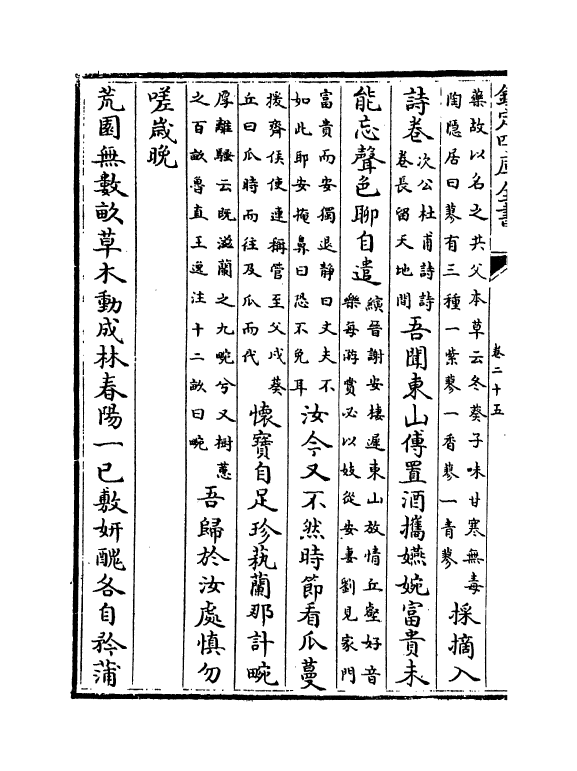 欽定四庫全書
卷二十五
藥故以名之共父本草云冬葵子味甘寒無毒
陶隱居曰蓼有三種一紫蓼一香蓼一青蓼
採摘入
詩卷
次公杜甫詩詩
卷長留天地間
吾聞東山傅置酒攜嬿婉富貴未
能忘聲色聊自遣
縯晉謝安棲遲東山放情丘壑好音
樂每游賞必以妓從安妻劉見家門
富貴而安獨退靜曰丈夫不
如此耶安掩鼻曰恐不免耳
汝今又不然時節看瓜蔓
援齊侯使連稱管至父戍葵
丘曰瓜時而往及瓜而代
懷寶自足珍藝蘭那計畹
厚離騷云既滋蘭之九畹兮又樹蕙
之百畝魯直王逸注十二畝曰畹
吾歸於汝處慎勿
嗟嵗晚
荒園無數畝草木動成林春陽一已敷妍醜各自矜蒲